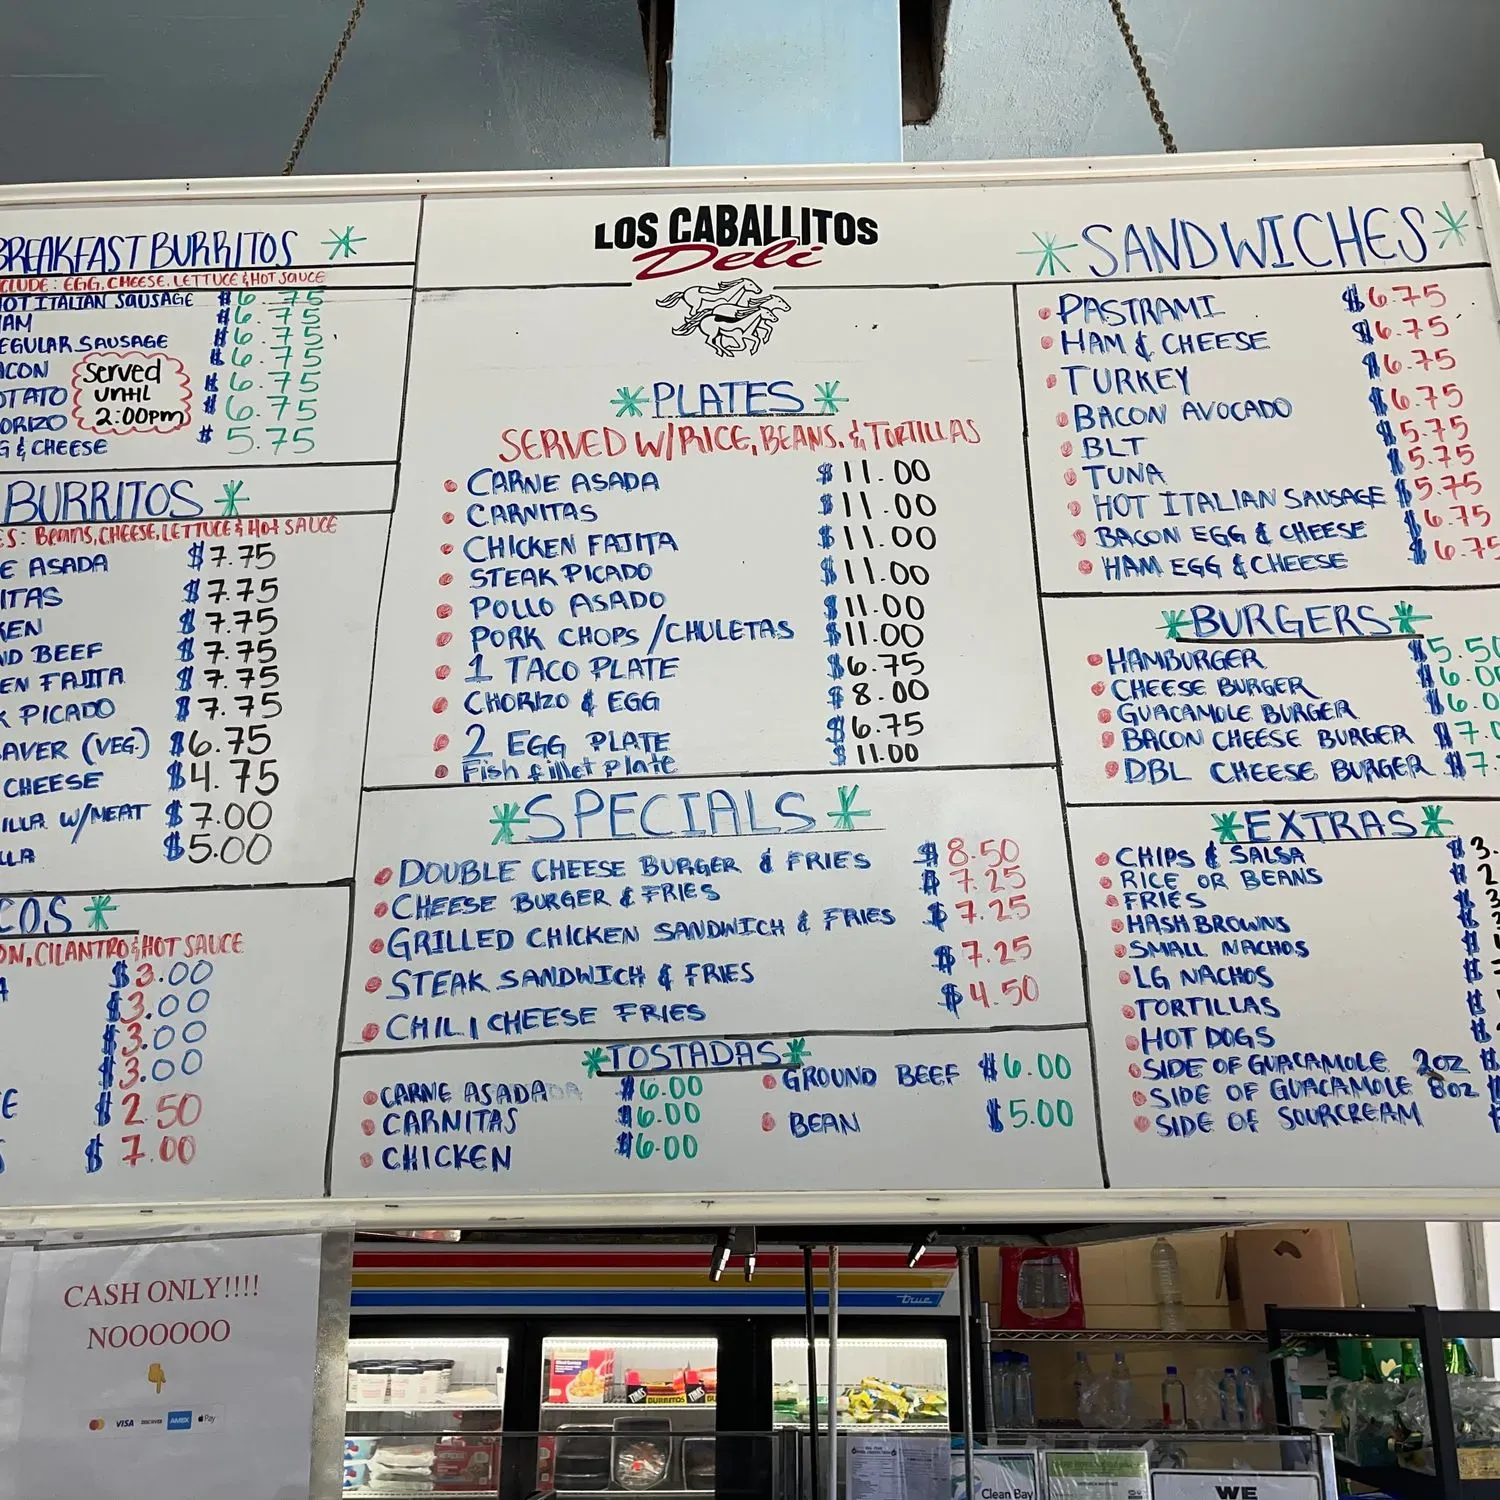 BREAKFAST BURRITOS
CLUDE: EGG, CHEESE, LETTUCE & HOT SAUCE
HOT ITALIAN SAUSAGE $6.75
HAM $6.75
REGULAR SAUSAGE $6.75
BACON $6.75
POTATO $6.75
CHORIZO $6.75
EGG & CHEESE $5.75
Served
until
2:00pm
BURRITOS
ES: BEANS, CHEESE, LETTUCE & HOT SAUCE
E ASADA $7.75
ITAS $7.75
KEN $7.75
ND BEEF $7.75
EN FAJITA $7.75
K PICADO $7.75
AVER (VEG.) $6.75
CHEESE $4.75
ILLA W/MEAT $7.00
LLA $5.00
COS
ON, CILANTRO & HOT SAUCE
A $3.00
$3.00
$3.00
$3.00
E $2.50
S $7.00
LOS CABALLITOS
Deli
PLATES
SERVED W/RICE, BEANS, & TORTILLAS
CARNE ASADA $11.00
CARNITAS $11.00
CHICKEN FAJITA $11.00
STEAK PICADO $11.00
POLLO ASADO $11.00
PORK CHOPS/CHULETAS $11.00
1 TACO PLATE $6.75
CHORIZO & EGG $8.00
2 EGG PLATE $6.75
Fish fillet Plate $11.00
SPECIALS
DOUBLE CHEESE BURGER & FRIES $8.50
CHEESE BURGER & FRIES $7.25
GRILLED CHICKEN SANDWICH & FRIES $7.25
STEAK SANDWICH & FRIES $7.25
CHILI CHEESE FRIES $4.50
TOSTADAS
CARNE ASADA $6.00
CARNITAS $6.00
CHICKEN $6.00
GROUND BEEF $6.00
BEAN $5.00
SANDWICHES
PASTRAMI $6.75
HAM & CHEESE $6.75
TURKEY $6.75
BACON AVOCADO $6.75
BLT $5.75
TUNA $5.75
HOT ITALIAN SAUSAGE $5.75
BACON EGG & CHEESE $6.75
HAM EGG & CHEESE $6.75
BURGERS
HAMBURGER $5.50
CHEESE BURGER $6.00
GUACAMOLE BURGER $6.0
BACON CHEESE BURGER $7.0
DBL CHEESE BURGER $7.
EXTRAS
CHIPS & SALSA $3.
RICE OR BEANS $2
FRIES $3
HASHBROWNS $
SMALL NACHOS $
LG NACHOS $
TORTILLAS $
HOT DOGS $
SIDE OF GUACAMOLE 2OZ $
SIDE OF GUACAMOLE 8OZ $
SIDE OF SOURCREAM $
CASH ONLY!!!!
NOOOOOO
VISA DISCOVER AMEX Pay
true
TINA'S
BURRITOS
Clean Bay
WE